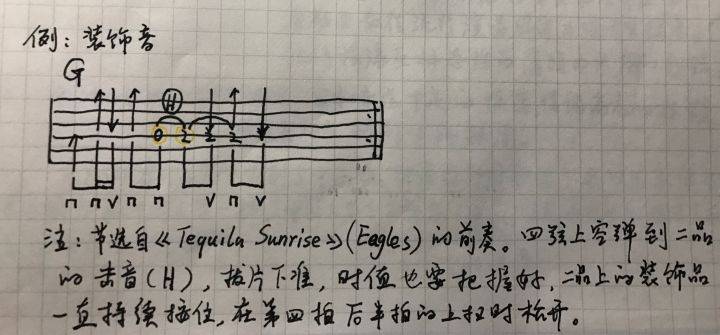 例：装饰音
G
H
0 2 2 2
п п V п п V п V
注：节选自《Tequila Sunrise》(Eagles)的前奏。四弦上空弹到二品
的击音(H)，拔片下准，时值也要把握好，二品上的装饰品
一直持续按住，在第四拍后半拍的上扫时松开。